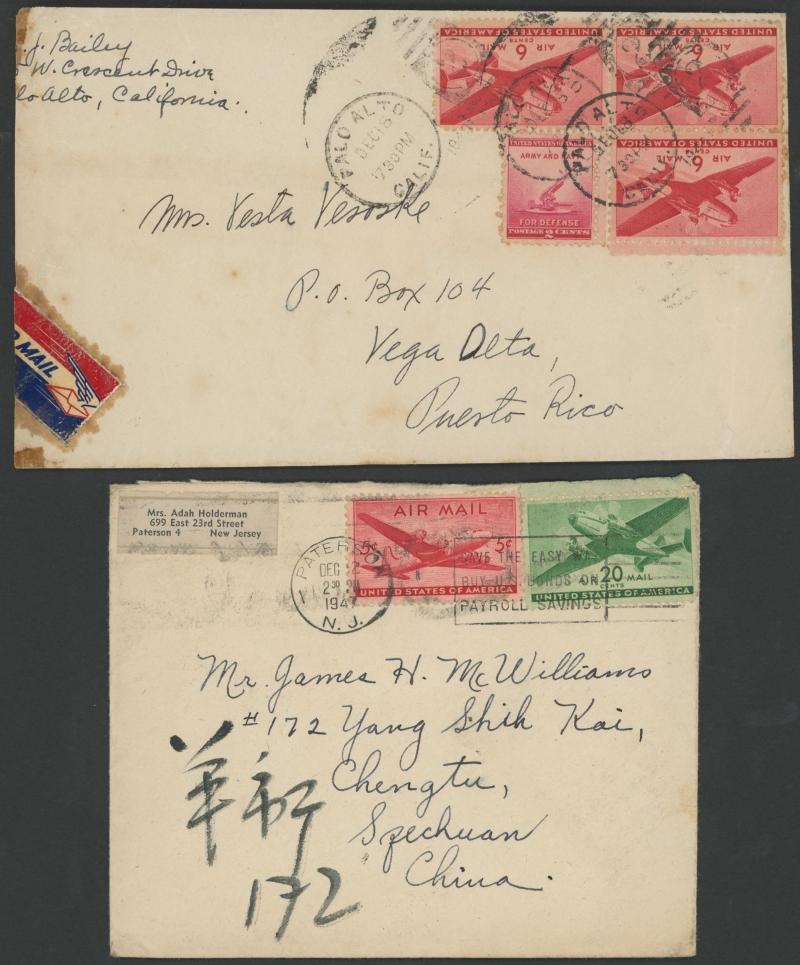 . J. Bailey
W. Crescent Drive
lo Alto, California.
UNITED STATES OF AMERICA
AIR MAIL
6 CENTS
UNITED STATES OF AMERICA
AIR MAIL
6 CENTS
PALO ALTO
DEC 16
7 30 PM
CALIF.
PALO ALTO
7 30 PM
CALIF.
UNITED STATES OF AMERICA
ARMY AND
FOR DEFENSE
POSTAGE 2 CENTS
UNITED STATES OF AMERICA
AIR MAIL
6 CENTS
Mrs. Vesta Vesoske
P.O. Box 104
Vega Alta,
Puerto Rico
MAIL
Mrs. Adah Holderman
699 East 23rd Street
Paterson 4 New Jersey
AIR MAIL
5¢ 5¢
UNITED STATES OF AMERICA
20 CENTS
MAIL
UNITED STATES OF AMERICA
PATERSON
DEC 12
2 30 PM
194
N. J.
SAVE THE EASY
BUY U.S. BONDS ON
PAYROLL SAVINGS
Mr. James H. McWilliams
#172 Yang Shih Kai,
Chengtu,
Szechuan
China.
羊市
172